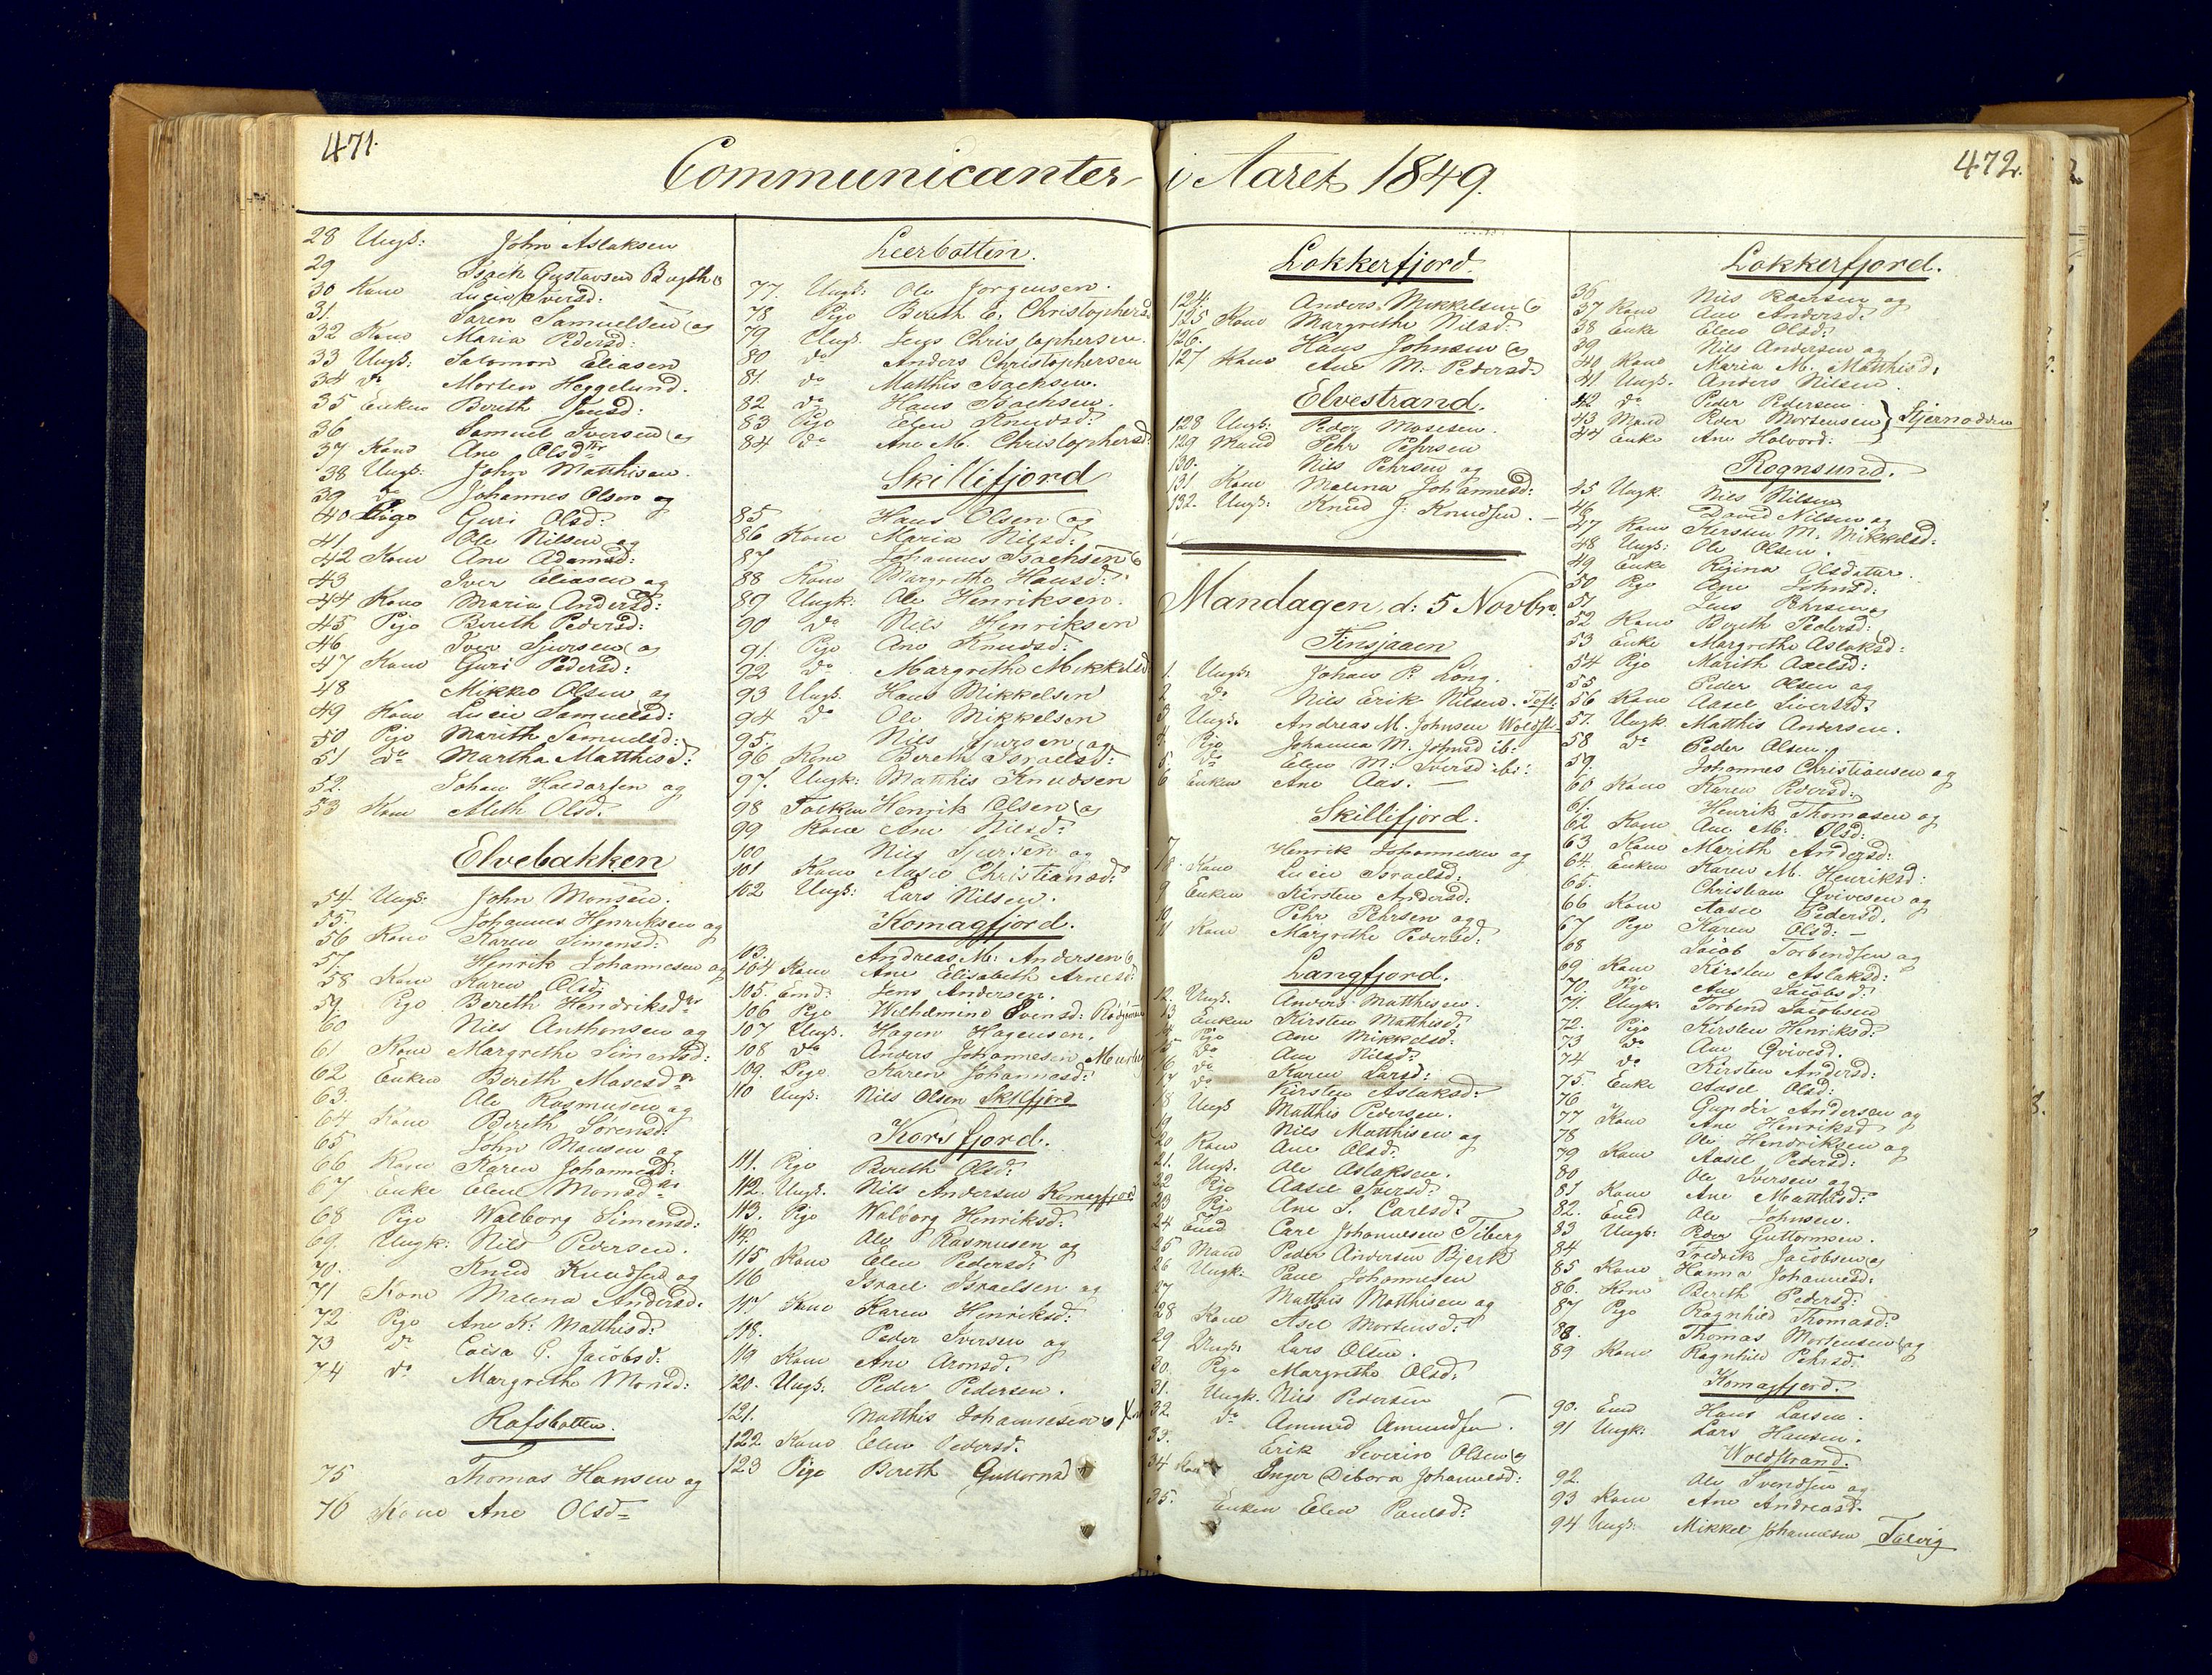 471.
Communicanter
28 Ungk: John Aslaksen
29 Isach Gustavsen
30 Kone Lucie Iversd:
31. Søren Samuelsen og
32 Kone Maria Pedersd:
33 Ungk: Salomon Eliasen
34 do Morten Heggelund.
35 Enken Bereth Jensd:
36 Samuel Iversen og
37 Kone Ane Olsdtr
38 Ungk: John Matthisen.
39 do Johannes Olsen og
40 Pige Guri Olsd:
41 Ole Nilsen og
42 Kone Ane Adamsd:
43 Iver Eliasen og
44 Kone Maria Andersd:
45 Pige Bereth Pedersd:
46 Iver Sjursen og
47 Kone Guri Pedersd:
48 Mikkel Olsen og
49 Kone Lucie Samuelsd:
50 Pige Marith Samuelsd:
51 do Martha Matthisd:
52. Johan Haldorsen og
53 Kone Aleth Olsd.
Elvebakken
54 Ungk: John Monsen.
55. Johannes Henriksen og
56 Kone Karen Simensd:
57. Henrik Johannesen og
58 Kone Karen Olsd:
59. Pige Bereth Hendriksdtr
60 Nils Anthonsen og
61 Kone Margrethe Simensd:
62 Enken Bereth Masesdtr
63. Ole Rasmusen og
64 Kone Bereth Sørensd:
65 John Monsen og
66 Kone Karen Johannesd:
67 Enke Elen Monsdtr
68 Pige Walborg Simensd:
69. Ungk: Nils Pedersen.
70. Knud Knudsen og
71 Kone Malena Andersd.
72 Pige Ane K: Matthisd:
73 do Caisa P. Jacobsd:
74 do Margrethe Monsd:
Rafsbotten.
75 Thomas Hansen og
76 Kone Ane Olsd
Leerbotten.
77. Ungk: Ole Jørgensen.
78 Pige Bereth E. Christophersd
79. Ungk. Jens Christophersen.
80 do Anders Christophersen
81. do Matthis Isachsen.
82 do Hans Isachsen.
83 Pige Elen Knudsd:
84 do Ane M. Christophersd:
Skillifjord
85 Hans Olsen og
86 Kone Maria Nilsd:
87 Johannes Isachsen og
88 Kone Margrethe Hansd:
89 Ungk: Ole Henriksen.
90 do Nils Henriksen
91. Pige Ane Knudsd:
92 do Margrethe Mikkelsd
93 Ungk. Hans Mikkelsen
94 do Ole Mikkelsen
95. Nils Sjursen og
96 Kone Bereth Israelsd:
97. Ungk: Matthis Knudsen
98 Henrik Olsen og
99 Kone Ane Nilsd:
100 Nils Sjursen og
101 Kone Aasel Christiansd:
102 Ungk: Lars Nilsen.
Komagfjord.
103. Andreas M: Andersen og
104 Kone Ane Elisabeth Arnesd:
105. Emd: Jens Andersen.
106 Pige Wilhelmine Svensd:
107 Ungk. Hagen Hagensen.
108 do Anders Johannesen
109. Pige Karen Johannesd:
110 Ungk: Nils Olsen Skilfjord
Korsfjord.
111. Pige Bereth Olsd:
112. Ungk. Nils Andersen Komagfjord
113. Pige Walborg Henriksd:
114. Ole Rasmusen og
115 Kone Elen Pedersd:
116 Israel Israelsen og
117. Kone Karen Henriksd:
118. Peder Iversen og
119 Kone Ane Aronsd:
120. Ungk: Peder Pedersen.
121. Matthis Johannesen og
122 Kone Elen Pedersd.
123 Pige Bereth Guttormsd
472.
i Aaret 1849.
Lokkerfjord.
124. Anders Mikkelsen og
125 Kone Margrethe Nilsd:
126. Hans Johnsen og
127 Kone Ane M. Pedersd:
Elvestrand.
128 Ungk: Peder Mosesen.
129 Mand Pehr Pehrsen
130. Nils Pehrsen og
131. Kone Malena Johannesd:
132. Ungk: Knud J: Knudsen.
Mandagen d: 5 Novbr.
Finsjaaen
1. Ungk: Johan P. Lang.
2 do Nils Erik Nilsen.
3 Ungk. Andreas M. Johnsen
4 Pige Johanna M. Johnsd ib:
5. do Elen M: Iversd ib:
6 Enken Ane Aas.
Skillifjord.
7 Henrik Johannesen og
8. Kone Lucie Israelsd:
9 Enken Kirsten Andersd:
10. Pehr Pehrsen og
11 Kone Margrethe Pedersd:
Langfjord.
12. Ungk. Anders Matthisen.
13 Enken Kirsten Matthisd:
14 Pige Ane Mikkelsd:
15 do Ane Nilsd:
16 do Karen Larsd:
17 do Kirsten Aslaksd:
18 Ungk Matthis Pedersen.
19. Nils Matthisen og
20 Kone Ane Olsd:
21. Ungk. Ole Aslaksen.
22 Pige Aasel Iversd:
23 Pige Ane S. Carlsd:
24 Emd Carl Johannesen Tiberg
25 Mand Peder Andersen Bjerk
26 Ungk: Paul Johannesen
27 Matthis Matthisen og
28 Kone Asel Mortensd:
29. Ungk. Lars Olsen.
30. Pige Margrethe Olsd:
31. Ungk. Nils Pedersen
32 do Ammund Amundsen.
33. Erik Severin Olsen og
34 Kone Inger Debora Johannesd:
35. Enken Elen Paulsd:
Lokkerfjord.
36 Nils Pedersen og
37 Kone Ane Andersd:
38 Enke Elen Olsd:
39 Nils Andersen og
40 Kone Maria M. Matthisd.
41. Ungk. Anders Nilsen.
42 do Peder Pedersen.
43 Mand Peder Mortensen } Stjernodden
44 Enke Ane Halvord:
Rognsund.
45 Ungk. Nils Nilsen
46 David Nilsen og
47 Kone Kirsten M. Mikkelsd:
48 Ungk: Ole Olsen.
49 Enke Regina Olsdatter.
50 Pige Ane Johnsd:
51 Jens Pehrsen og
52 Kone Bereth Pedersd:
53 Enke Margrethe Aslaksd:
54 Pige Marith Axelsd:
55 Peder Olsen og
56 Kone Aasel Sivertsd:
57. Ungk Matthis Andersen.
58 do Peder Olsen.
59. Johannes Christiansen og
60 Kone Karen Pedersd:
61. Henrik Thomasen og
62 Kone Ane M: Olsd:
63 Kone Marith Andersd:
64. Enken Karen M. Henriksd:
65. Christian Qvivesen og
66 Kone Aasel Pedersd.
67 Pige Karen Olsd:
68 Jacob Torbendsen og
69 Kone Kirsten Aslaksd:
70. Pige Ane Jacobsd:
71. Ungk. Torbend Jacobsen
72. Pige Kirsten Henriksd:
73 do Ane Qvivesd.
74 do Kirsten Andersd:
75. Enke Aasel Olsd:
76 Gunder Andersen og
77 Kone Ane Henriksd
78 Ole Hendriksen og
79 Kone Aasel Pedersd:
80 Ole Iversen og
81 Kone Ane Matthisd:
82. Emd Ole Johnsen.
83 Ungk: Peder Guttormsen.
84 Fredrik Jacobsen og
85 Kone Hanna Johannesd:
86. Kone Bereth Pedersd:
87 Pige Ragnhild Thomasd:
88. Thomas Mortensen og
89 Kone Ragnhild Pehrsd:
Komagfjord.
90. Emd Hans Larsen.
91 Ungk: Lars Hansen.
Woldstrand.
92. Ole Svendsen og
93 Kone Ane Andreasd.
94 Ungk: Mikkel Johannesen Talvig